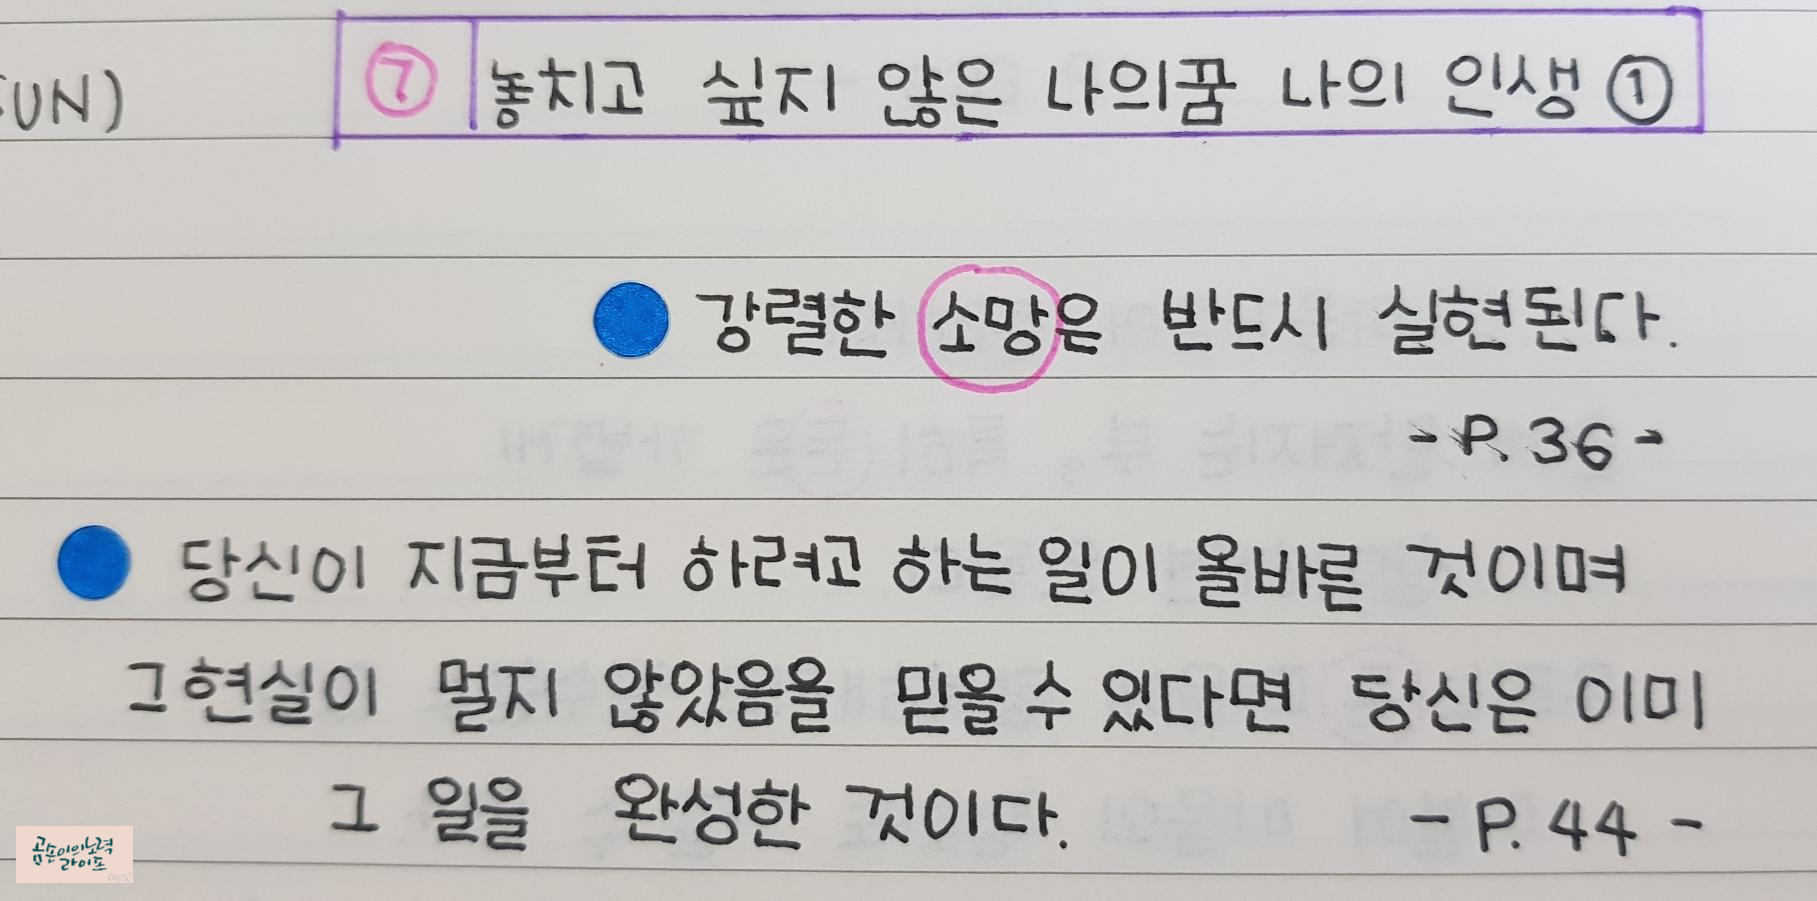 SUN)
⑦ 놓치고 싶지 않은 나의꿈 나의 인생 ①
강렬한 소망은 반드시 실현된다.
- P. 36 -
당신이 지금부터 하려고 하는 일이 올바른 것이며
그현실이 멀지 않았음을 믿을 수 있다면 당신은 이미
그 일을 완성한 것이다. - P. 44 -
곰손이의노력
라이프